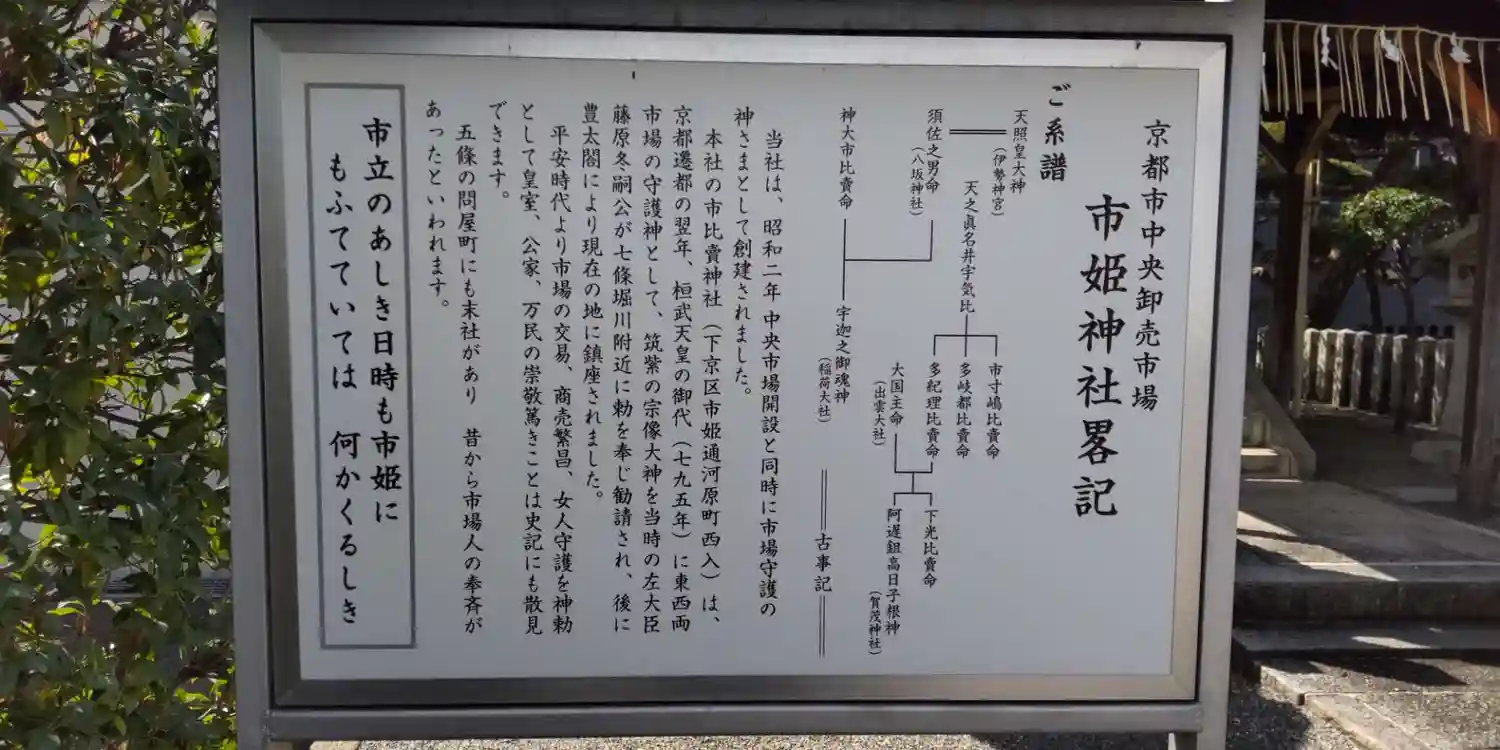 京都市中央卸売市場
市姫神社畧記
ご系譜
天照皇大神
（伊勢神宮）
須佐之男命
（八坂神社）
天之眞名井宇気比
市寸嶋比賣命
多岐都比賣命
多紀理比賣命
大国主命
（出雲大社）
下光比賣命
阿遅鉏高日子根神
（賀茂神社）
神大市比賣命
宇迦之御魂神
（稲荷大社）
古事記
当社は、昭和二年中央市場開設と同時に市場守護の
神さまとして創建されました。
本社の市比賣神社（下京区市姫通河原町西入）は、
京都遷都の翌年、桓武天皇の御代（七九五年）に東西両
市場の守護神として、筑紫の宗像大神を当時の左大臣
藤原冬嗣公が七條堀川附近に勅を奉じ勧請され、後に
豊太閤により現在の地に鎮座されました。
平安時代より市場の交易、商売繁昌、女人守護を神勅
として皇室、公家、万民の崇敬篤きことは史記にも散見
できます。
五條の問屋町にも末社があり　昔から市場人の奉斉が
あったといわれます。
市立のあしき日時も市姫に
もふてていては　何かくるしき